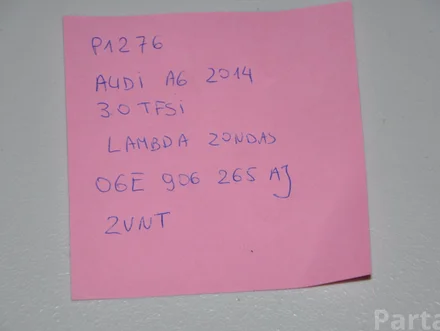 P1276
AUDi A6 2014
3.0 TFSi
LAMBDA ZONDAS
06E 906 265 AJ
2VNT
Parta